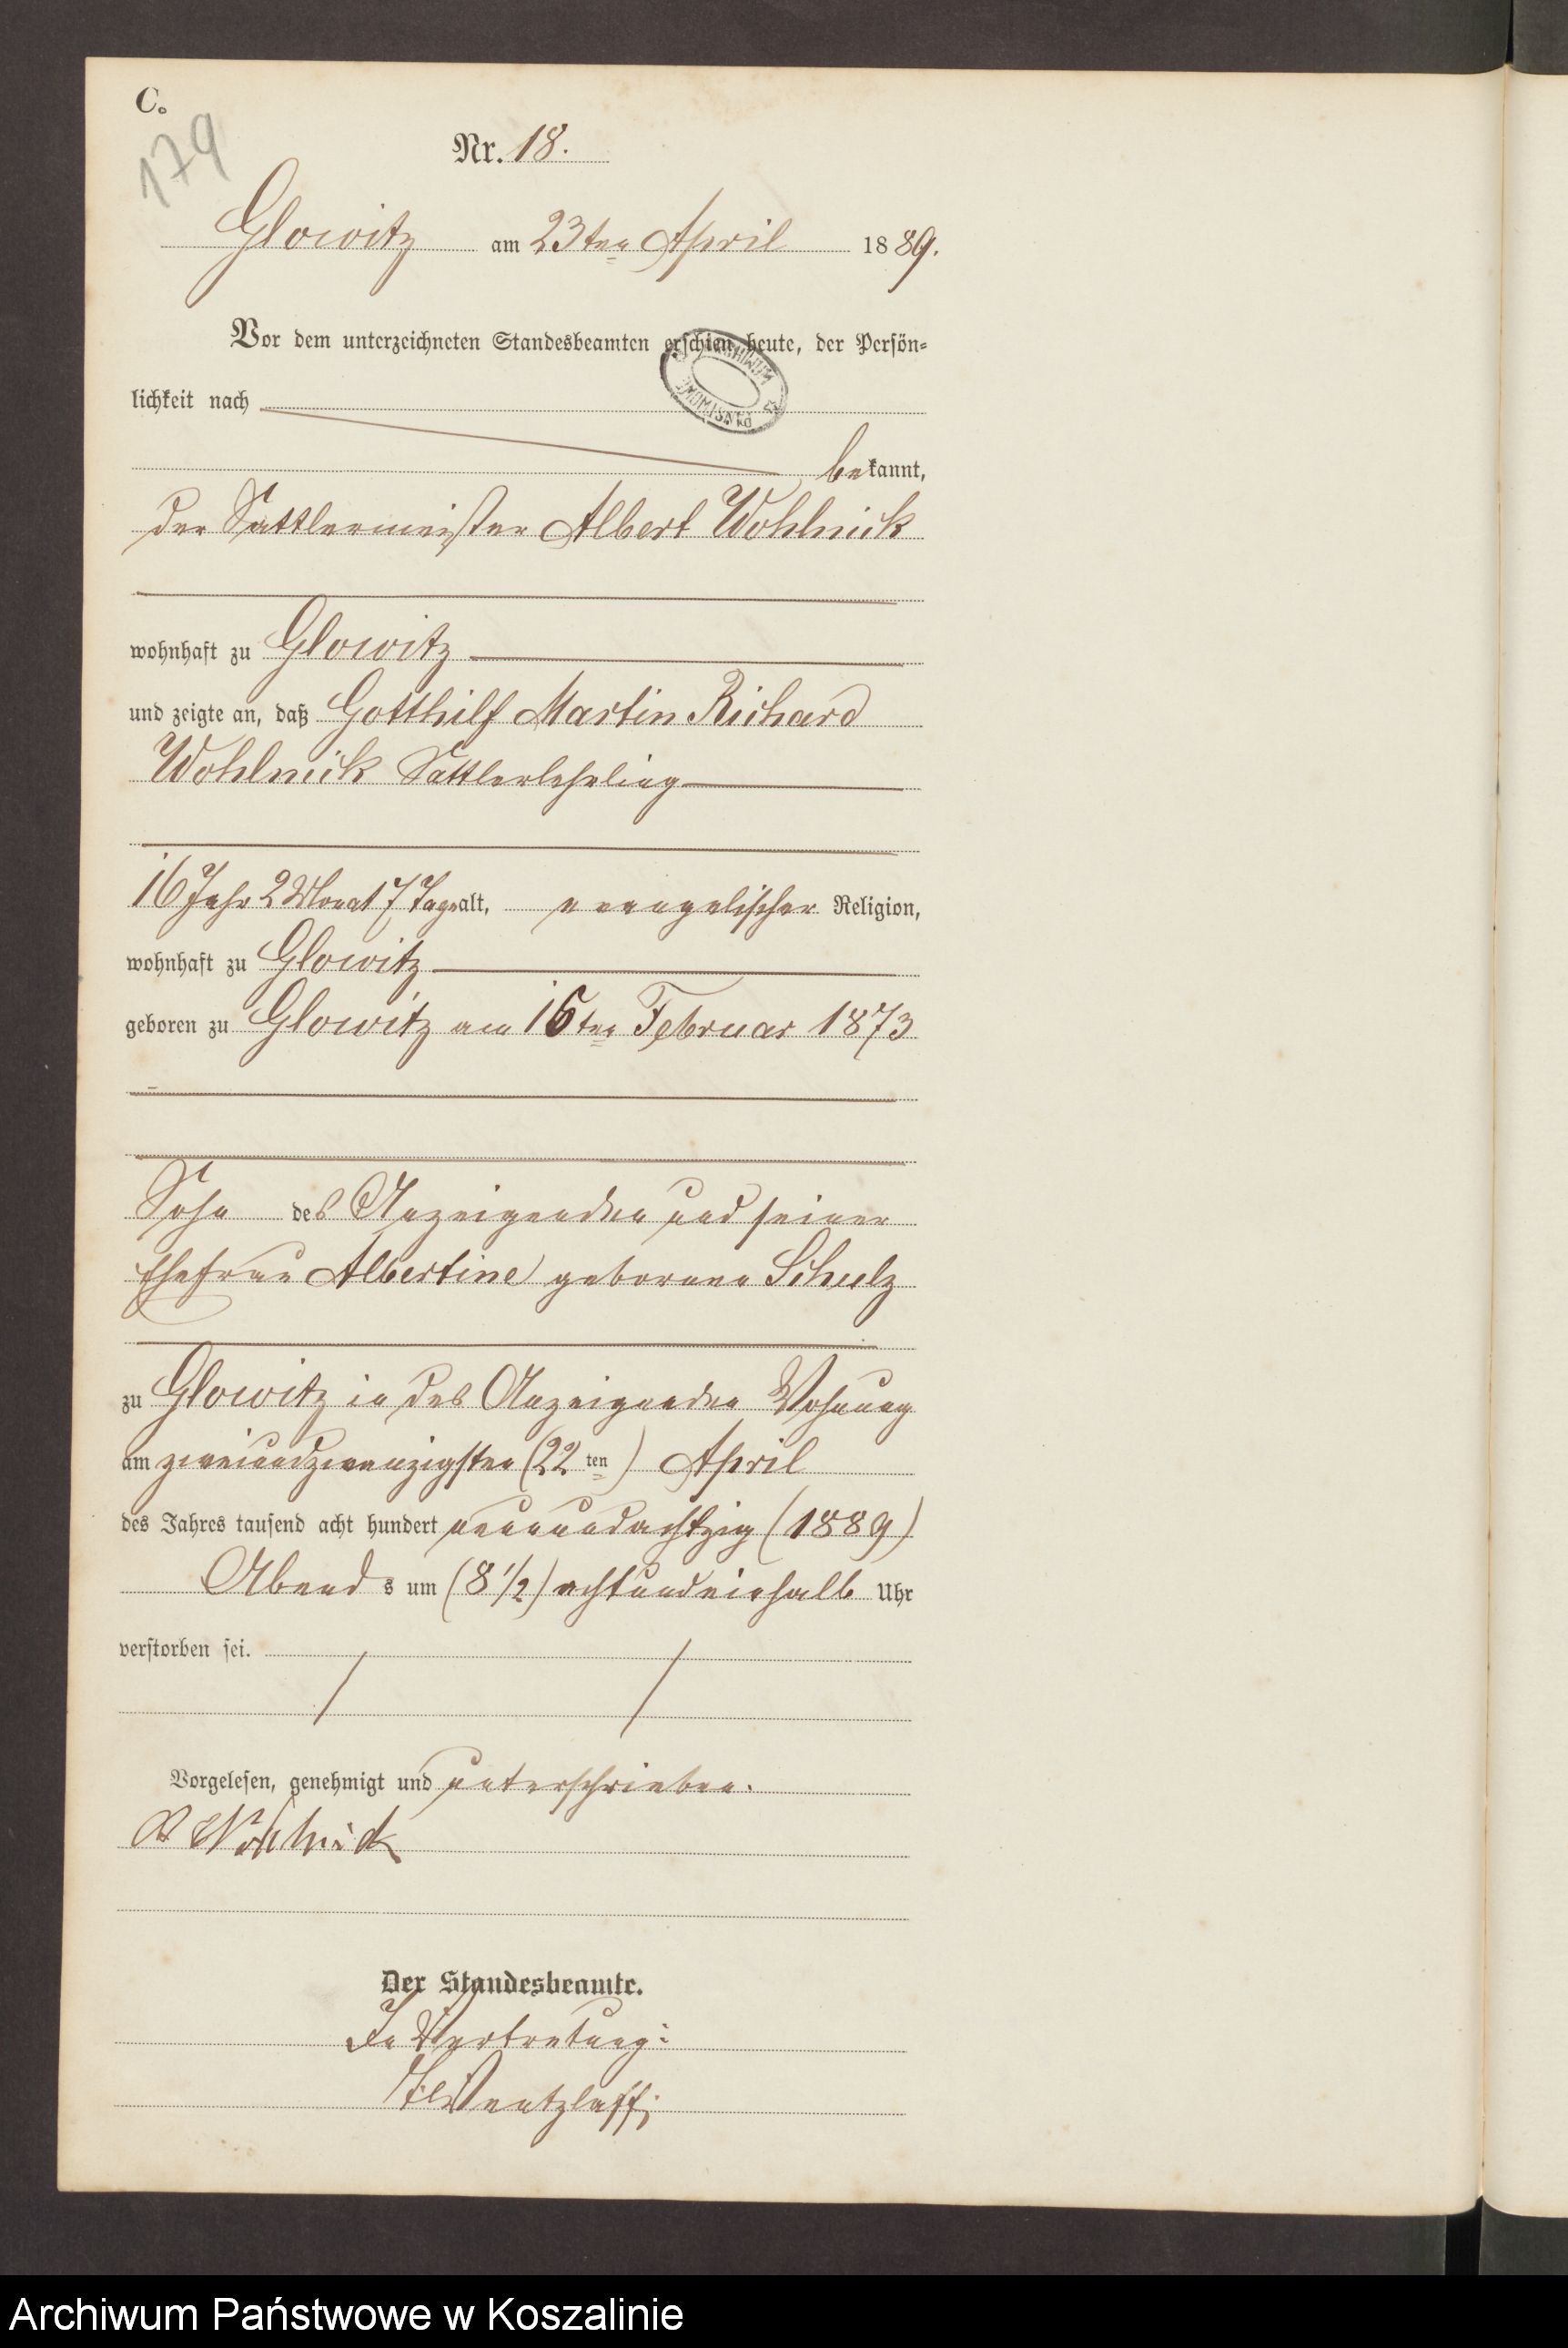 C.
179
Nr. 18.
Glowitz am 23ten April 1889.
Vor dem unterzeichneten Standesbeamten erschien heute, der Persön-
lichkeit nach
bekannt,
der Sattlermeister Albert Wohlnick
wohnhaft zu Glowitz
und zeigte an, daß Gotthilf Martin Richard
Wohlnick Sattlerlehrling
16 Jahr 2 Monat 7 Tage alt, evangelischer Religion,
wohnhaft zu Glowitz
geboren zu Glowitz am 16ten Februar 1873
Sohn des Anzeigenden und seiner
Ehefrau Albertine geborene Schulz
zu Glowitz in des Anzeigenden Wohnung
am zweiundzwanzigsten (22ten) April
des Jahres tausend acht hundert neunundachtzig (1889)
Abends um (8 1/2) achtundeinhalb Uhr
verstorben sei.
Vorgelesen, genehmigt und unterschrieben.
A Wohlnick
Der Standesbeamte.
In Vertretung:
Wentzlaff
PAŃSTWOWE
ARCHIWUM
Archiwum Państwowe w Koszalinie